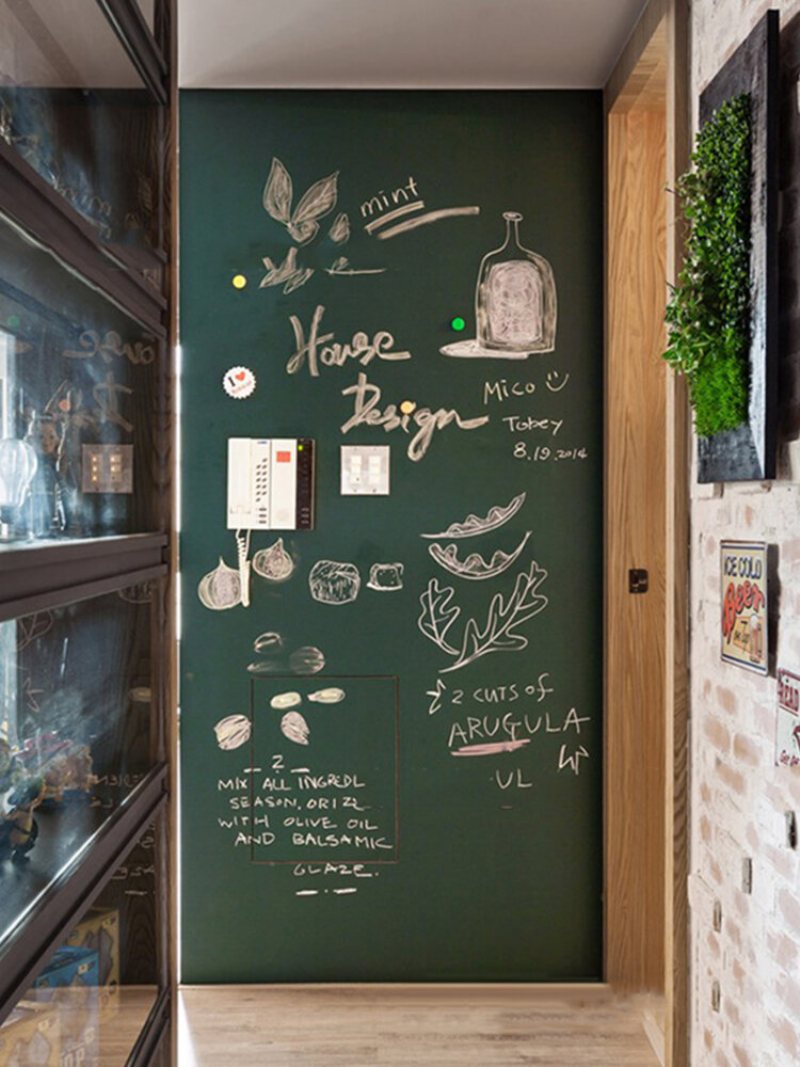 mint
House
Design
Mico
Tobey
8.19.2014
I
2 CUTS of
ARUGULA
UL
2
MIX ALL INGREDL
SEASON, ORIZL
WITH OLIVE OIL
AND BALSAMIC
GLAZE.
ICE COLD
Beer
on Tap